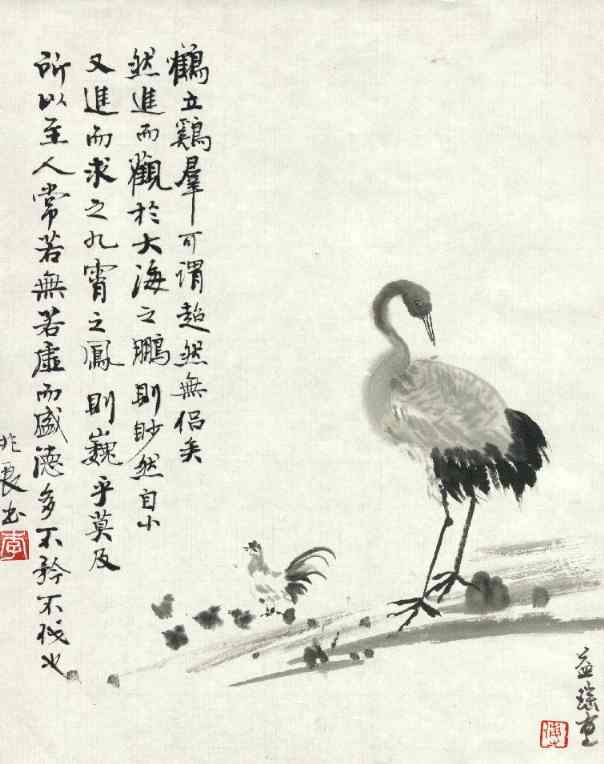 鶴立鷄羣可謂超然無侶矣
然進而觀於大海之鵬則眇然自小
又進而求之九霄之鳳則巍乎莫及
所以至人常若無若虛而盛德多不矜不伐也
兆良书
李
益瑤画